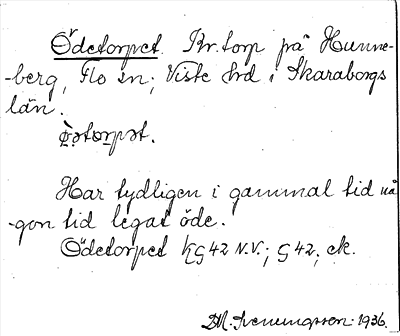 Ödetorpet. Kr. torp på Hunne-
-berg, Flo sn; Viste hrd i Skaraborgs
län.
Har tydligen i gammal tid nå
-gon tid legat öde.
Ödetorpet KG 42 N.V.; G 42; ek.
1936.